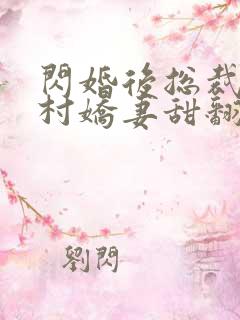 閃婚後總裁
村嬌妻甜翻
劉閃